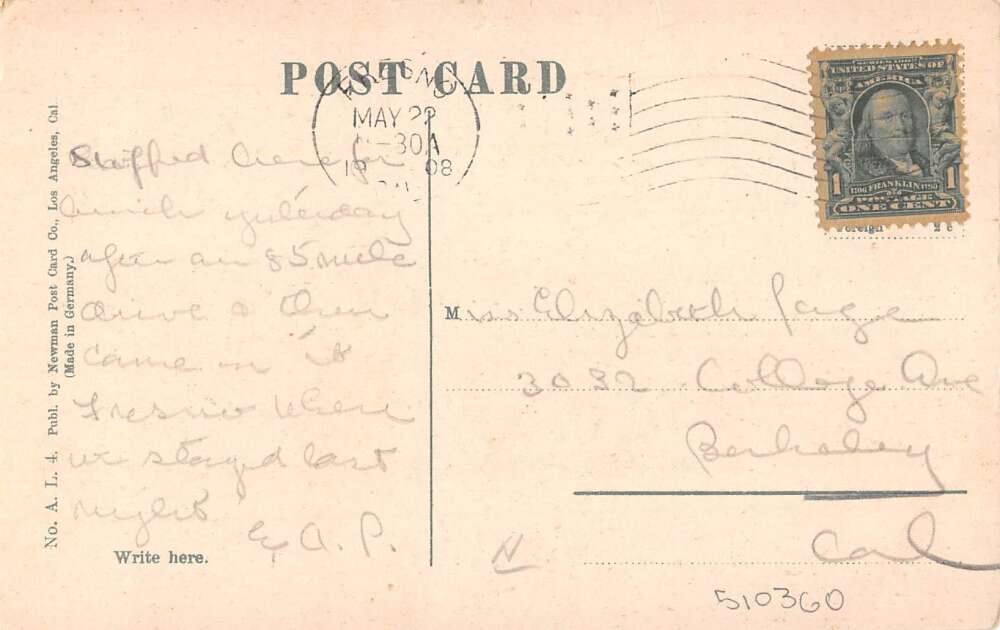 POST CARD
FRESNO
MAY 22
-30A
19 08
SERIES 1902
UNITED STATES OF
AMERICA
1 1
1706 FRANKLIN 1790
POSTAGE
ONE CENT
Foreign 2c
No. A. L. 4. Publ. by Newman Post Card Co., Los Angeles, Cal.
(Made in Germany.)
Stopped here for
lunch yesterday
after an 85 mile
drive & then
came on to
Fresno where
we stayed last
night
E. A. P.
Write here.
Miss Elizabeth Page
3032 College Ave
Berkeley
Cal
N
510360